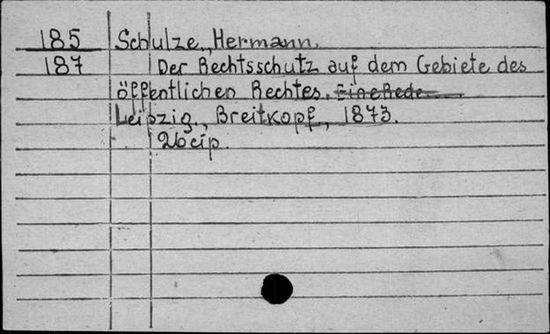 185 Schulze, Hermann.
187 Der Rechtsschutz auf dem Gebiete des
öffentlichen Rechtes. Eine Rede
Leipzig., Breitkopf, 1873.